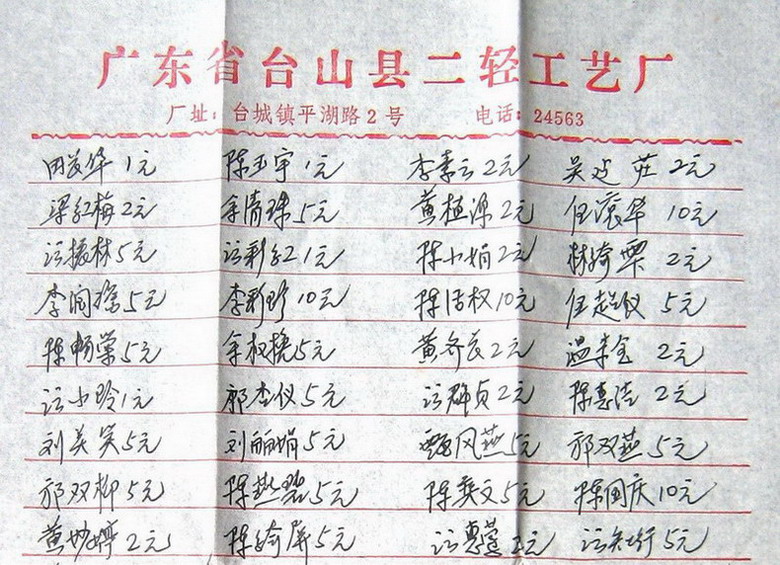 广东省台山县二轻工艺厂
厂址：台城镇平湖路2号 电话：24563
田爱华 1元 陈亚宇 1元 李素云 2元 吴 庄 2元
梁红梅 2元 余清珠 5元 黄植源 2元 任滚华 10元
振林 5元 彩红 1元 陈小娟 2元 林绮栗 2元
李润 5元 李彩珍 10元 陈洁权 10元 任超仪 5元
陈畅棠 5元 余权换 5元 黄齐长 2元 温 金 2元
小玲 1元 邝杰仪 5元 群贞 2元 陈惠洁 2元
刘美笑 5元 刘丽娟 5元 甄风燕 5元 邝双燕 5元
邝双柳 5元 陈 碧 5元 陈 文 5元 陈国庆 10元
黄妙婷 2元 陈绮屏 5元 惠莲 2元 行 5元